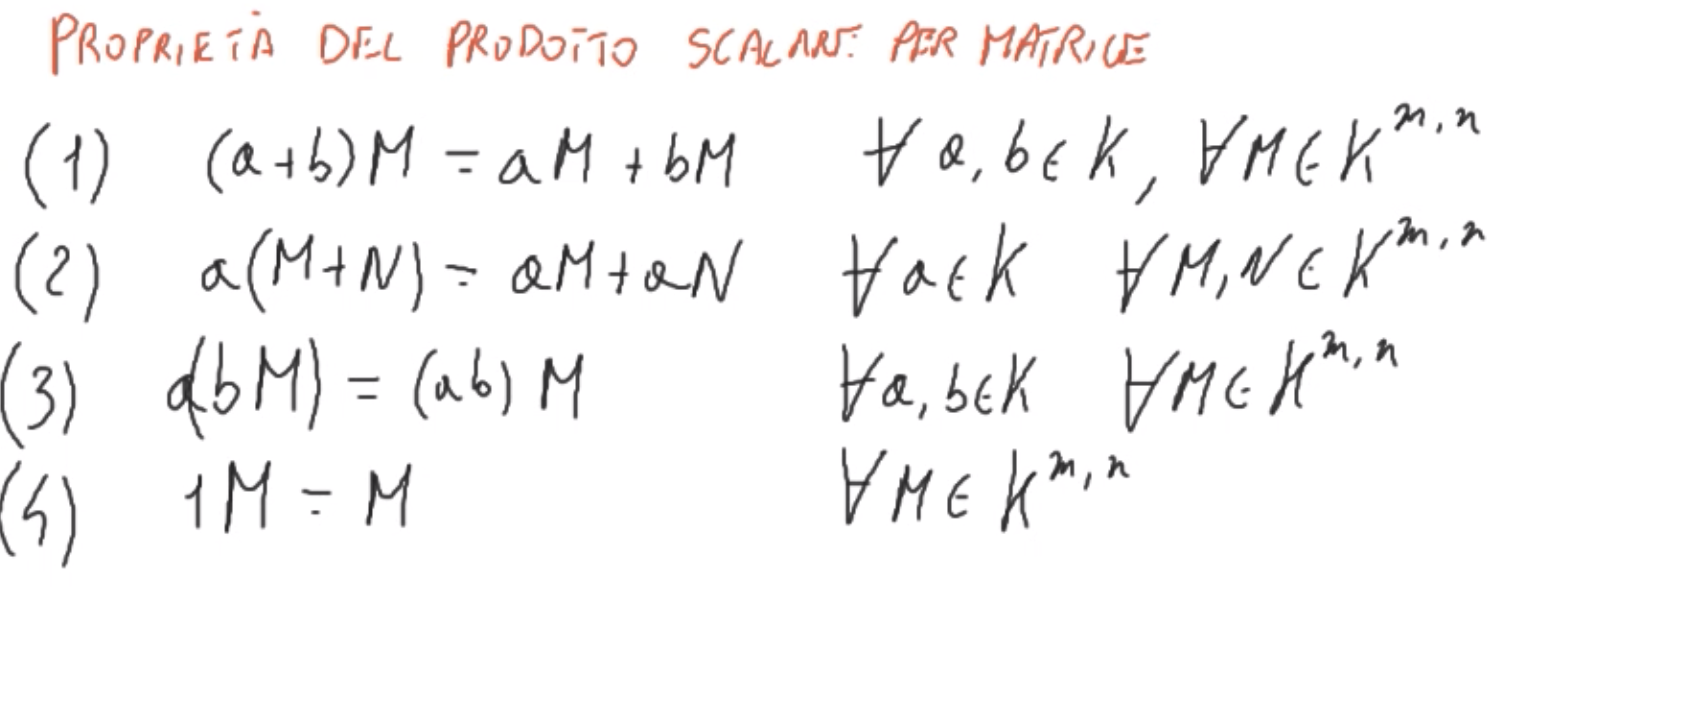 PROPRIETÀ DEL PRODOTTO SCALARE PER MATRICE
(1) (a+b)M = aM + bM ∀ a, b ∈ K, ∀M ∈ K^{m,n}
(2) a(M+N) = aM + aN ∀a ∈ K ∀M,N ∈ K^{m,n}
(3) a(bM) = (ab) M ∀a, b ∈ K ∀M ∈ K^{m,n}
(4) 1M = M ∀M ∈ K^{m,n}